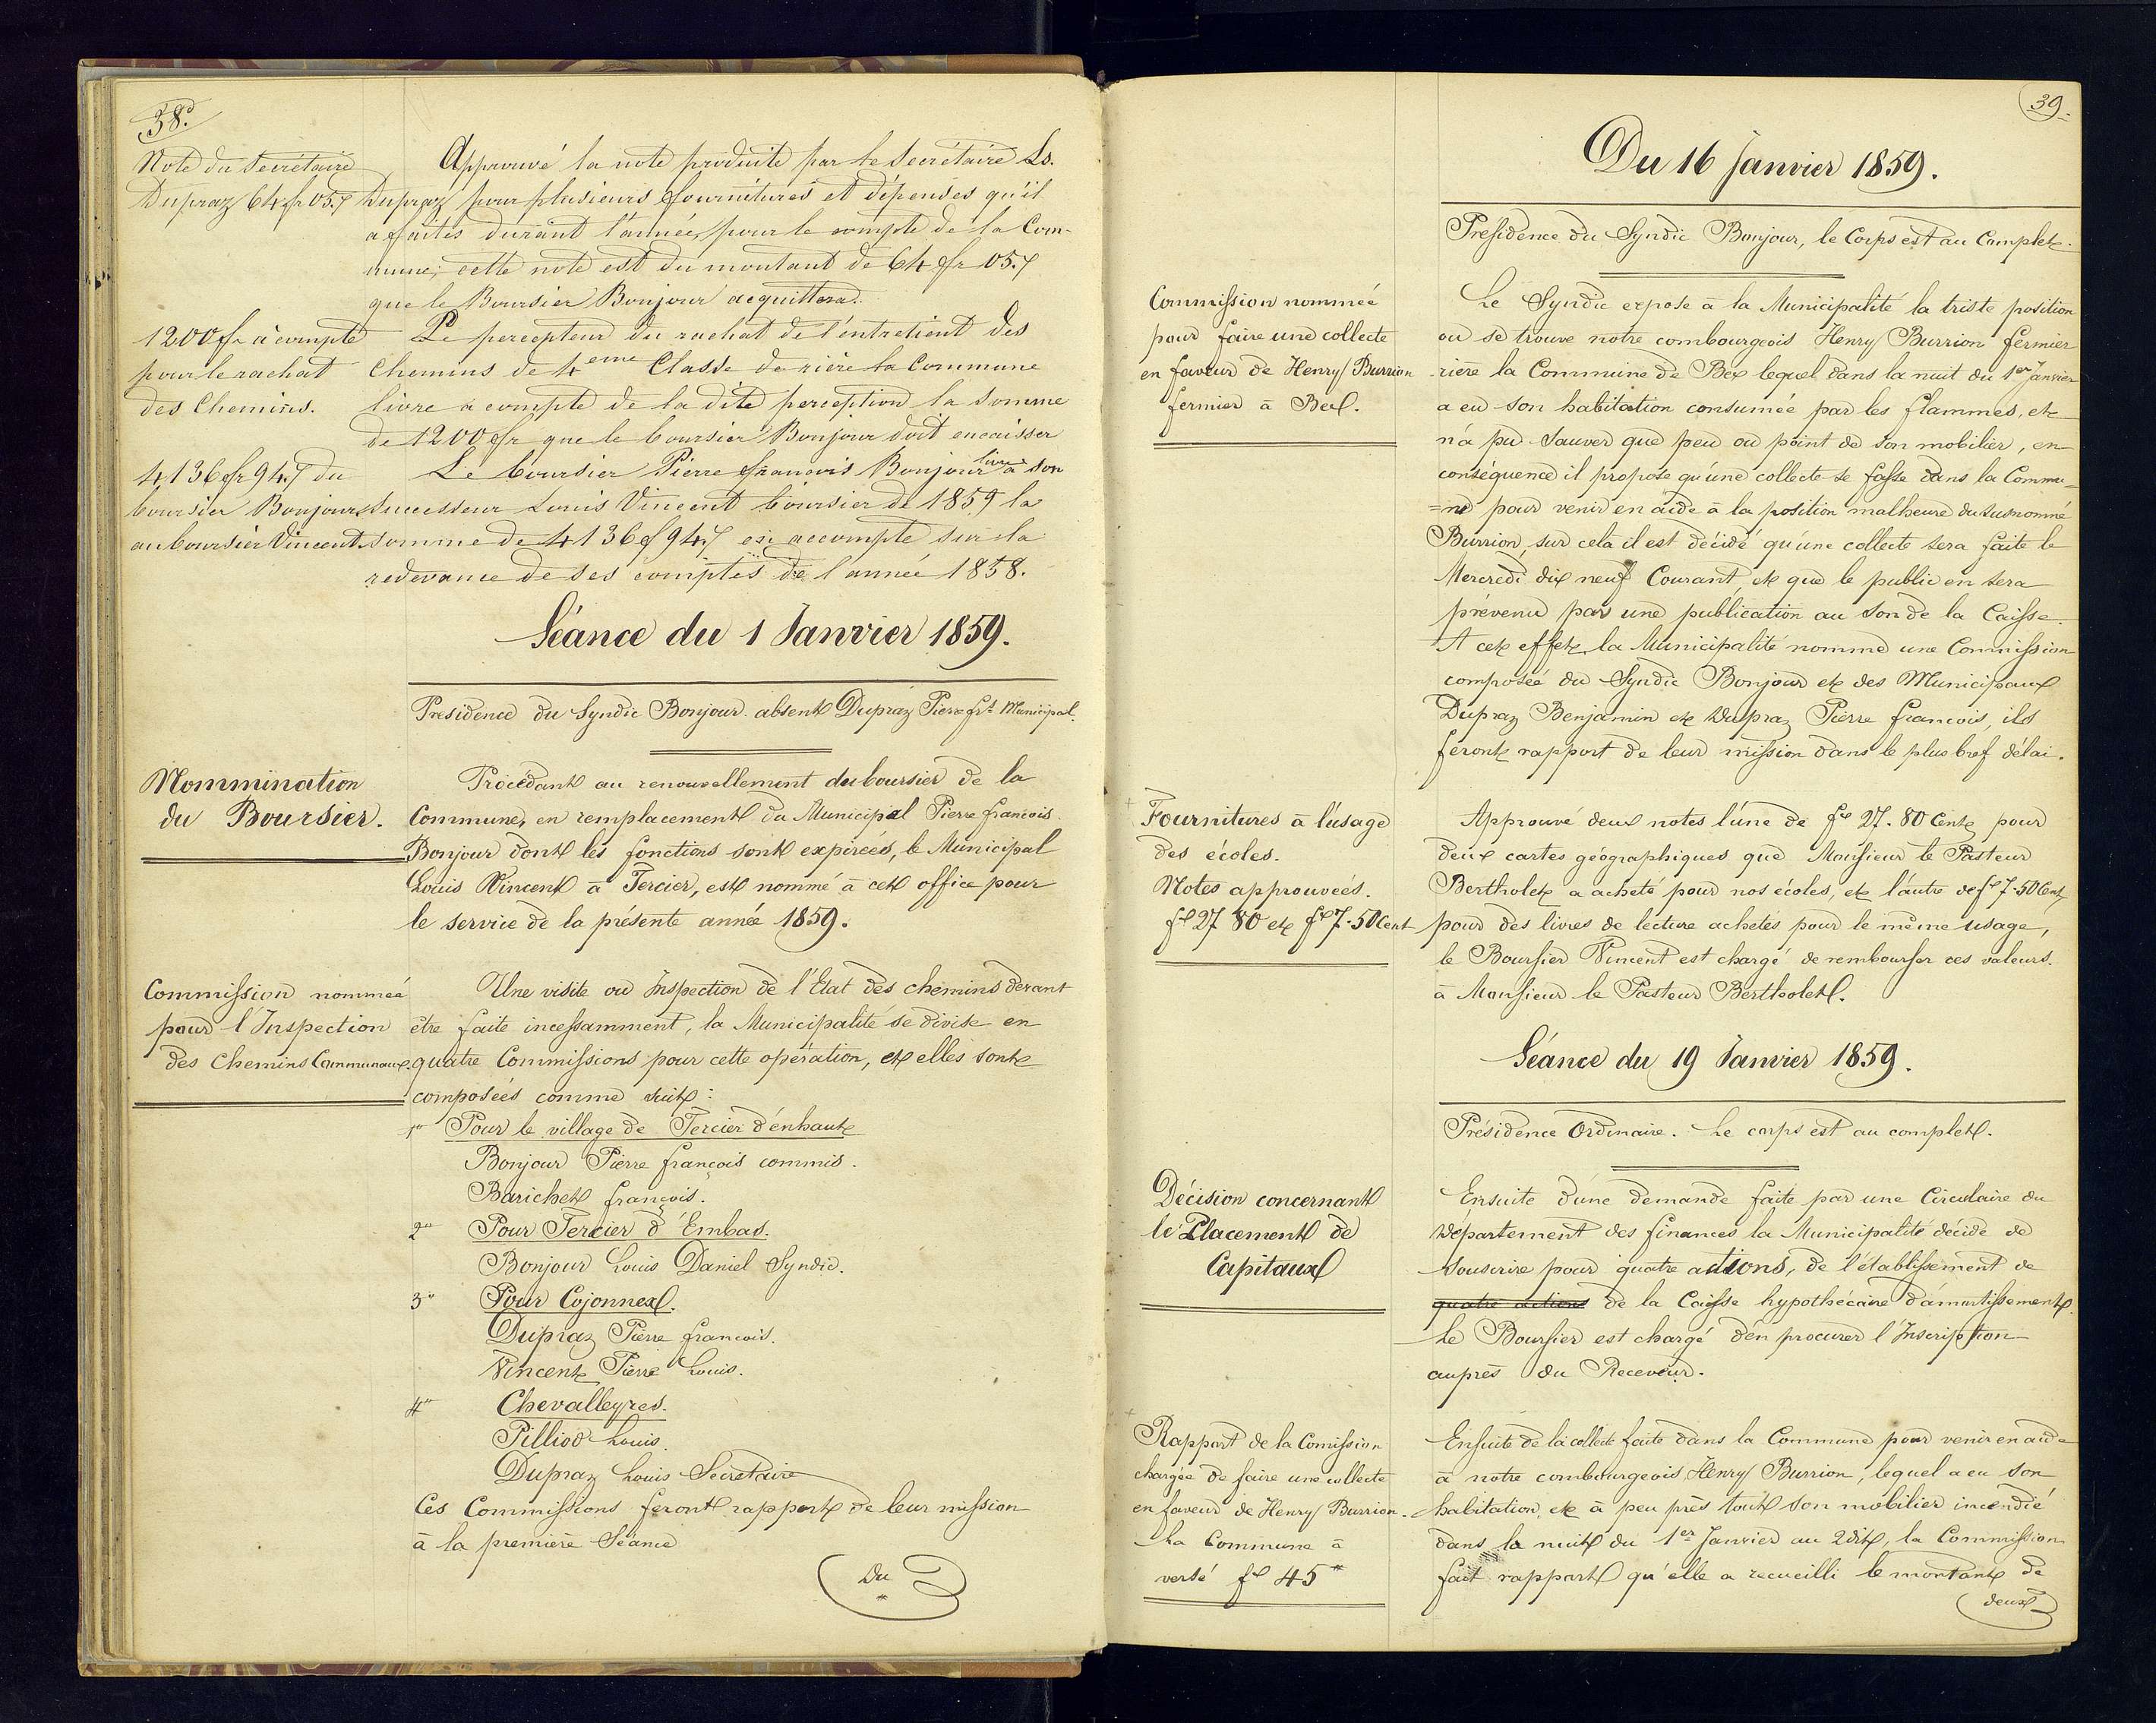 38.
Note du Secrétaire
Dupraz 64 fr 05.
Approuvé la note produite par le Secrétaire Ls.
Dupraz pour plusieurs fournitures et dépenses qu'il
a faites durant l'année, pour le compte de la Com-
mune; cette note est du montant de 64 fr 05.
que le Boursier Bonjour acquittera.
1200 fr à compte
pour le rachat
des Chemins.
Le percepteur du rachat de l'entretient des
Chemins de 4eme Classe de rière la Commune
livre à compte de la dite perception la somme
de 1200 fr que le boursier Bonjour doit encaisser
4136 fr 94. du
boursier Bonjour
au boursier Vincent
Le boursier Pierre francois Bonjour livre à son
Successeur Louis Vincent boursier de 1859 la
somme de 4136 f 94. en accompte sur la
redevance de ses comptes de l'année 1858.
Séance du 1 Janvier 1859.
Présidence du Syndic Bonjour. absent Dupraz Pierre frs Municipal.
Nommination
du Boursier.
Procédant au renouvellement du boursier de la
Commune, en remplacement du Municipal Pierre francois
Bonjour dont les fonctions sont expireés, le Municipal
Louis Vincent à Tercier, est nommé à cet office pour
le service de la présente année 1859.
Commission nommeé
pour l'Inspection
des Chemins Communaux.
Une visite ou Inspection de l'Etat des chemins devant
être faite incessamment, la Municipalité se divise en
quatre Commissions pour cette opération, et elles sont
composées comme suit:
1° Pour le village de Tercier d'enhaut
Bonjour Pierre françois commis.
Barichet françois.
2° Pour Tercier d'Embas.
Bonjour Louis Daniel Syndic.
3° Pour Cojonnex.
Dupraz Pierre francois.
Vincent Pierre Louis.
4° Chevalleyres.
Pilliod Louis.
Dupraz Louis Secrétaire
Ces Commissions feront rapport de leur mission
à la première Séance
Du
39.
Du 16 Janvier 1859.
Présidence du Syndic Bonjour, le Corps est au Complet.
Commission nommeé
pour faire une collecte
en faveur de Henry Burrion
fermier à Bex.
Le Syndic expose à la Municipalité la triste position
ou se trouve notre combourgeois Henry Burrion fermier
rière la Commune de Bex lequel dans la nuit du 1er Janvier
a eu son habitation consumée par les flammes, et
n'a pu sauver que peu ou point de son mobilier, en
conséquence il propose qu'une collecte se fasse dans la Commu=
=ne pour venir en aide à la position malheure du susnommé
Burrion, sur cela il est décidé qu'une collecte sera faite le
Mercredi dix neuf Courant, et que le public en sera
prévenu par une publication au son de la Caisse.
A cet effet la Municipalité nomme une Commission
composée du Syndic Bonjour et des Municipaux
Dupraz Benjamin et Dupraz Pierre francois, ils
feront rapport de leur mission dans le plus bref délai.
Fournitures à l'usage
des écoles.
Notes approuvées.
fs 27 80 et fs 7.50 Cent
Approuvé deux notes l'une de fs 27.80 Cent pour
deux cartes géographiques que Monsieur le Pasteur
Bertholet a acheté pour nos écoles, et l'autre de fs 7.50 Cent
pour des livres de lecture achetés pour le même usage,
le Boursier Vincent est chargé de rembourser ces valeurs.
à Monsieur le Pasteur Bertholet.
Séance du 19 Janvier 1859.
Présidence Ordinaire. Le corps est au complet.
Décision concernant
le Placement de
Capitaux
Ensuite d'une demande faite par une Circulaire du
Département des finances la Municipalité décide de
souscrire pour quatre actions, de l'établissement de
quatre actions de la Caisse hypothécaire d'amortissement.
Le Boursier est chargé d'en procurer l'Inscription
auprès du Receveur.
Rappart de la Comission
chargée de faire une collecte
en faveur de Henry Burrion.
La Commune à
versé fs 45
Ensuite de la collecte faite dans la Commune pour venir en aide
à notre combourgeois Henry Burrion, lequel a eu son
habitation, et à peu près tout son mobilier incendié
dans la nuit du 1er Janvier au 2 dit, la Commission
fait rapport qu'elle a recueilli le montant de
deux